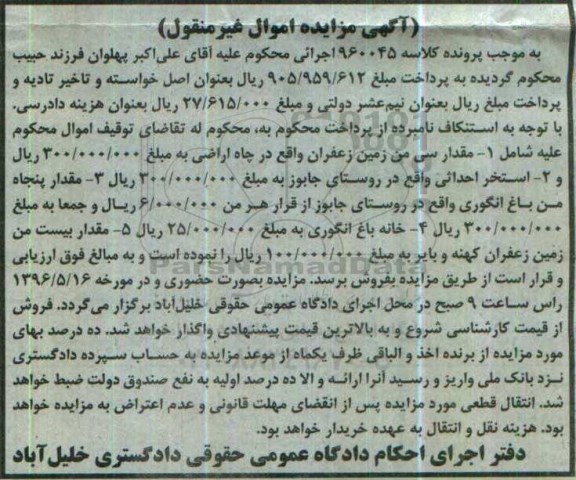 (آگهی مزایده اموال غیرمنقول)
به موجب پرونده کلاسه ۹۶۰۰۴۵ اجرائی محکوم علیه آقای علی‌اکبر پهلوان فرزند حبیب
محکوم گردیده به پرداخت مبلغ ۹۰۵/۹۵۹/۶۱۲ ریال بعنوان اصل خواسته و تاخیر تادیه و
پرداخت مبلغ ریال بعنوان نیم‌عشر دولتی و مبلغ ۲۷/۶۱۵/۰۰۰ ریال بعنوان هزینه دادرسی.
با توجه به استنکاف نامبرده از پرداخت محکوم به، محکوم له تقاضای توقیف اموال محکوم
علیه شامل ۱- مقدار سی من زمین زعفران واقع در چاه اراضی به مبلغ ۳۰۰/۰۰۰/۰۰۰ ریال
و ۲- استخر احداثی واقع در روستای جابوز به مبلغ ۳۰۰/۰۰۰/۰۰۰ ریال ۳- مقدار پنجاه
من باغ انگوری واقع در روستای جابوز از قرار هر من ۶/۰۰۰/۰۰۰ ریال و جمعا به مبلغ
۳۰۰/۰۰۰/۰۰۰ ریال ۴- خانه باغ انگوری به مبلغ ۲۵/۰۰۰/۰۰۰ ریال ۵- مقدار بیست من
زمین زعفران کهنه و بایر به مبلغ ۱۰۰/۰۰۰/۰۰۰ ریال را نموده است و به مبالغ فوق ارزیابی
و قرار است از طریق مزایده بفروش برسد. مزایده بصورت حضوری و در مورخه ۱۳۹۶/۵/۱۶
راس ساعت ۹ صبح در محل اجرای دادگاه عمومی حقوقی خلیل‌آباد برگزار می‌گردد. فروش
از قیمت کارشناسی شروع و به بالاترین قیمت پیشنهادی واگذار خواهد شد. ده درصد بهای
مورد مزایده از برنده اخذ و الباقی ظرف یکماه از موعد مزایده به حساب سپرده دادگستری
نزد بانک ملی واریز و رسید آنرا ارائه و الا ده درصد اولیه به نفع صندوق دولت ضبط خواهد
شد. انتقال قطعی مورد مزایده پس از انقضای مهلت قانونی و عدم اعتراض به مزایده خواهد
بود. هزینه نقل و انتقال به عهده خریدار خواهد بود.
دفتر اجرای احکام دادگاه عمومی حقوقی دادگستری خلیل‌آباد
ParsNamadData